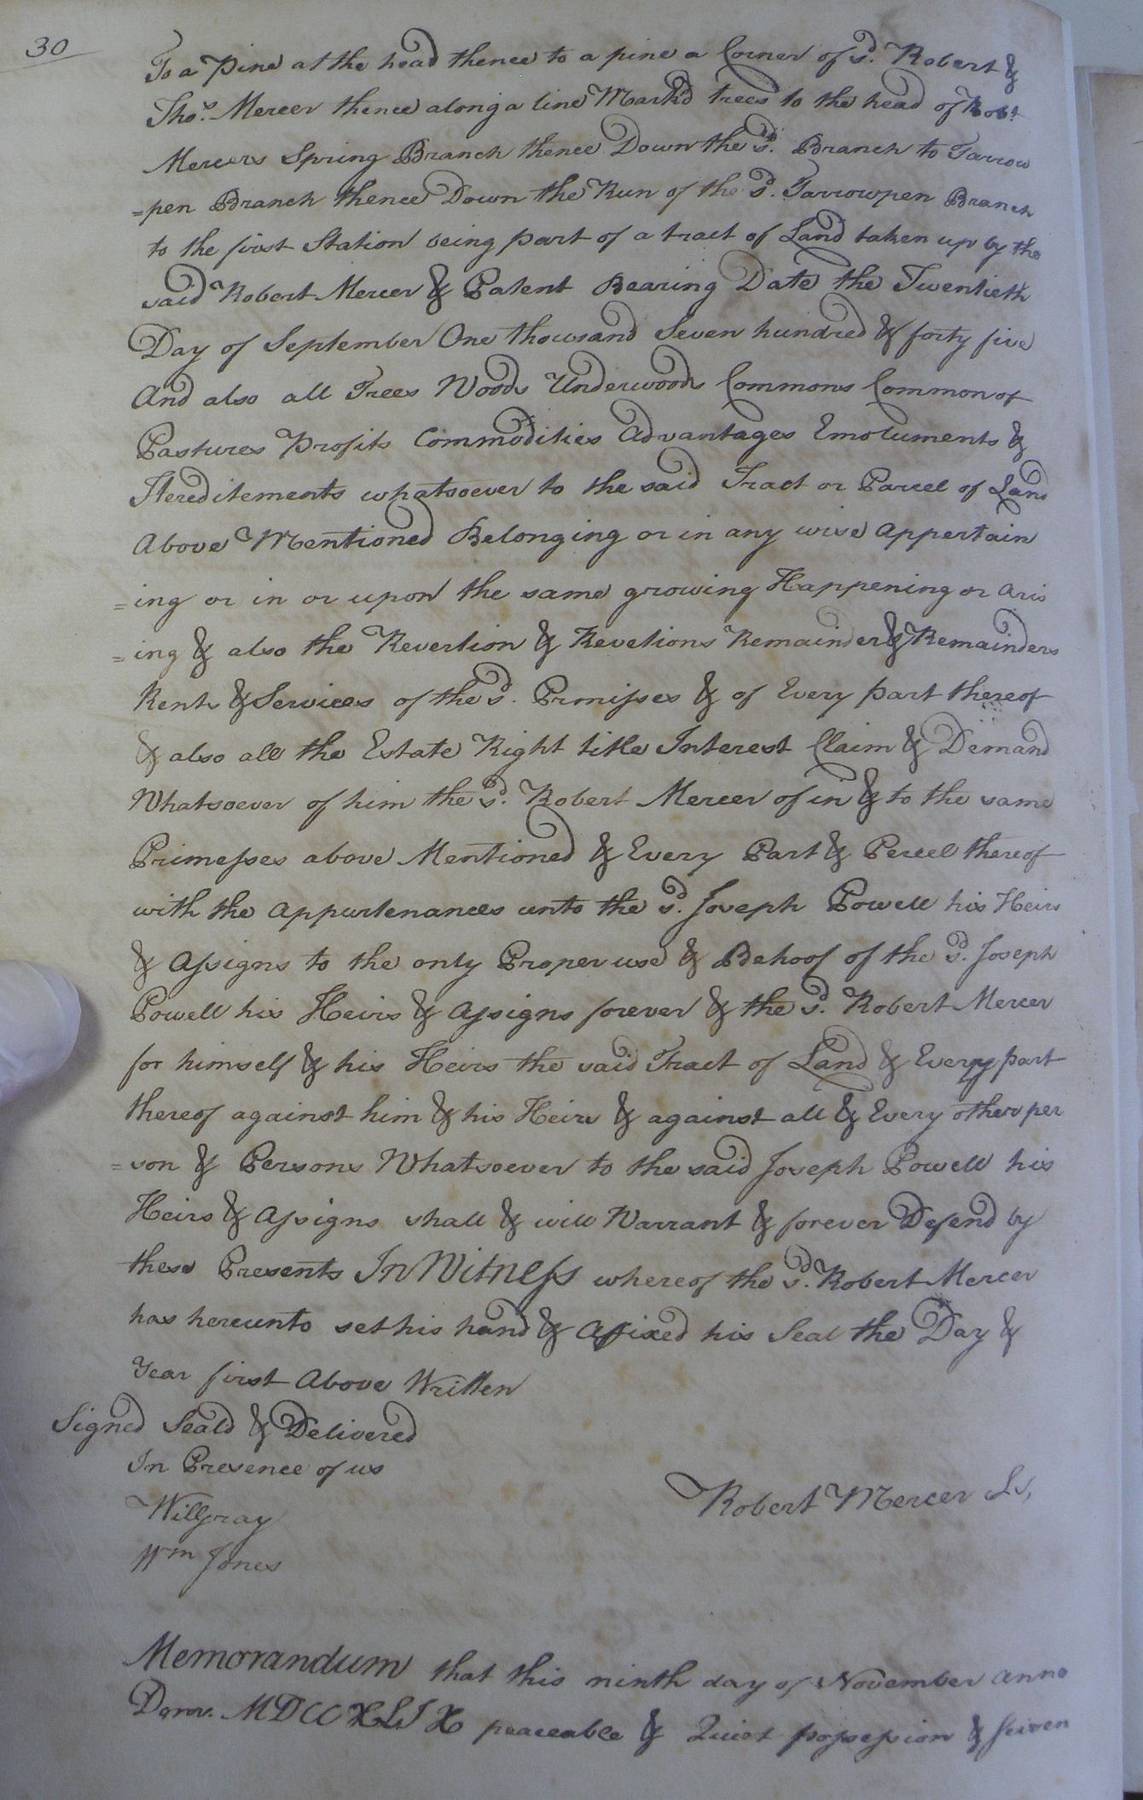 30
To a Pine at the head thence to a pine a Corner of sd. Robert &
Thos. Mercer thence along a line Markd trees to the head of Robt
Mercers Spring Branch thence Down the sd. Branch to Tarrow
=pen Branch thence Down the Run of the sd. Tarrowpen Branch
to the first Station being part of a tract of Land taken up by the
said Robert Mercer & Patent Bearing Date the Twentieth
Day of September One thousand Seven hundred & forty five
And also all Trees Woods Underwoods Commons Common of
Pastures Profits Commodities Advantages Emoluments &
Hereditements whatsoever to the said Tract or Parcel of Land
Above Mentioned Belonging or in any wise Appertain
=ing or in or upon the same growing Happening or Aris
=ing & also the Revertion & Revetions Remainder & Remainders
Rents & Services of the sd. Premisses & of Every part thereof
& also all the Estate Right title Interest Claim & Demand
Whatsoever of him the sd. Robert Mercer of in & to the same
Primesses above Mentioned & Every Part & Percel thereof
with the Appurtenances unto the sd. Joseph Powell his Heirs
& Assigns to the only Proper use & Behoof of the sd. Joseph
Powell his Heirs & Assigns forever & the sd. Robert Mercer
for himself & his Heirs the said Tract of Land & Every part
thereof against him & his Heirs & against all & Every other per
=son & Persons Whatsoever to the said Joseph Powell his
Heirs & Assigns shall & will Warrant & forever Defend by
these Presents In Witness whereof the sd. Robert Mercer
has hereunto set his hand & Affixed his Seal the Day &
Year first Above Written
Signed Seald & Delivered
In Presence of us
Robert Mercer Ls,
Will Gray
Wm Jones
Memorandum that this ninth day of November anno
Dom. MDCCXLIX peaceable & Quiet possession & seizen